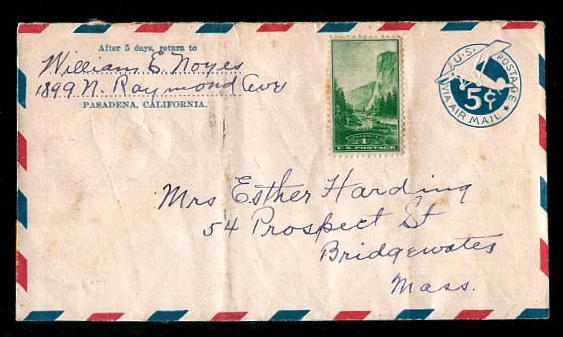 After 5 days, return to
William E. Noyes
1899 N. Raymond Ave
PASADENA, CALIFORNIA.
YOSEMITE
1¢
U.S. POSTAGE
U.S. POSTAGE
VIA AIR MAIL
5¢
Mrs Esther Harding
54 Prospect St
Bridgewater
Mass.